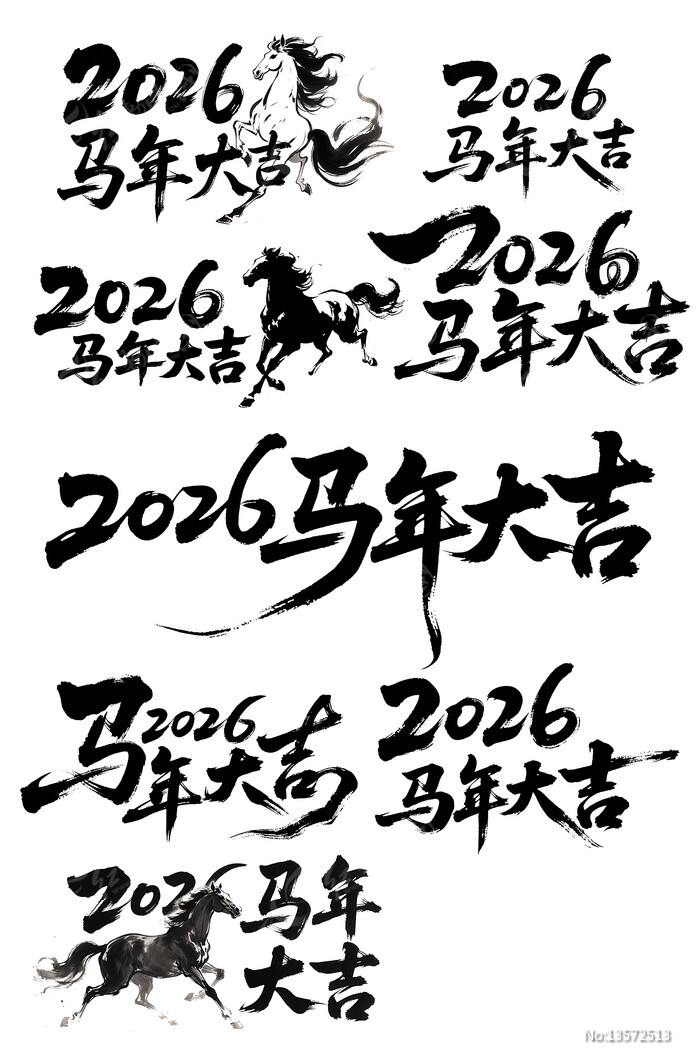 2026
马年大吉
2026
马年大吉
2026
马年大吉
2026
马年大吉
2026马年大吉
马2026
年大吉
2026
马年大吉
2026马年
大吉
No:13572513